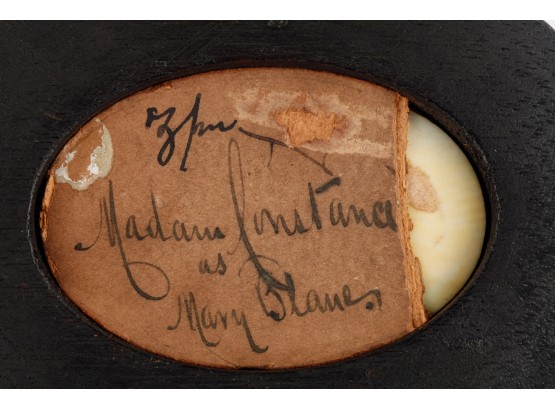 Madam Constance
as
Mary Blane